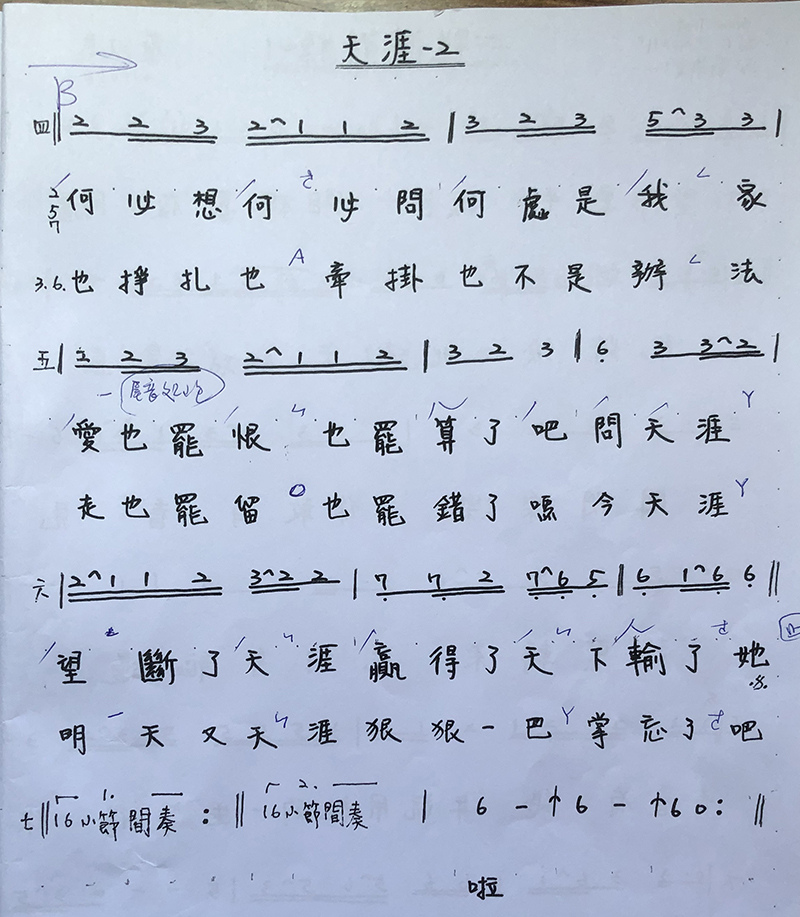 天涯-2
B
四‖ 2 2 3 2^1 1 2 | 3 2 3 5^3 3 |
2 5 7 何必想何ㄜ必問何處是我ㄑ家
3.6. 也掙扎也A牽掛也不是辦ㄑ法
五| 2 3 2^1 1 2 | 3 2 3 | 6 3 3^2 |
愛也罷恨ㄣ也罷算了吧問天涯Y
走也罷留O也罷錯了嗎今天涯Y
六| 2^1 1 2 3^2 2 | 7 7 2 7^6 5 | 6 1^6 6 ‖
望斷了天ㄣ涯贏得了天ㄣ下輸了ㄜ她
明一天又天ㄣ涯狠狠一巴Y掌忘了ㄜ吧
七‖ 1. 16小節間奏 :‖ 2. 16小節間奏 | 6 - ↑6 - ↑6 0 : ‖
啦